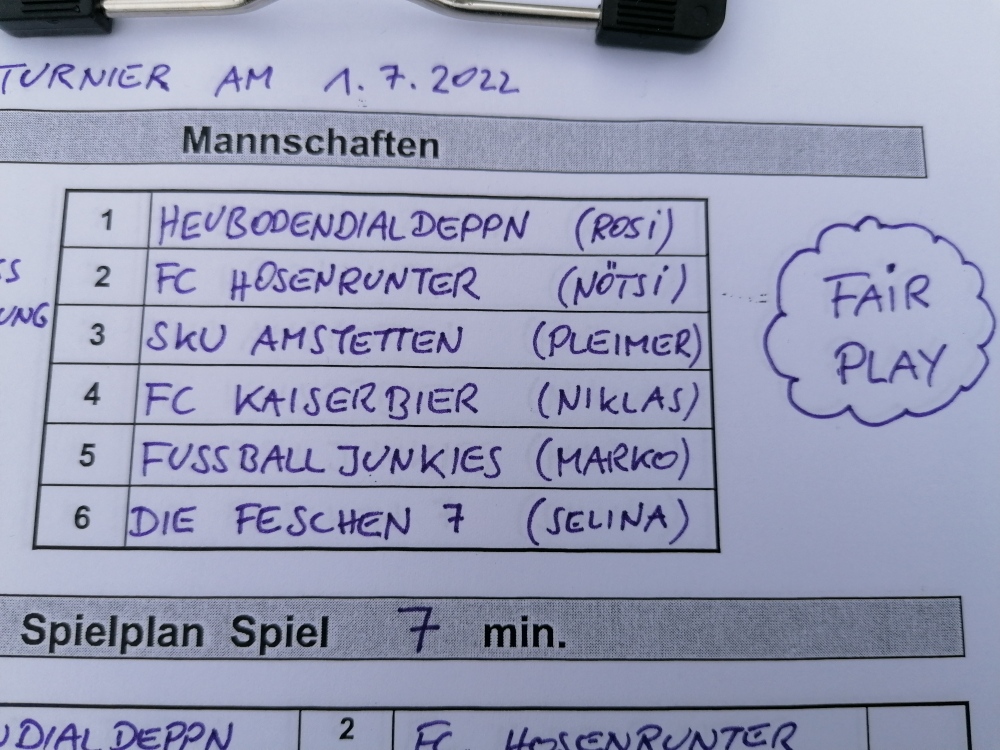 TURNIER AM 1.7.2022
Mannschaften
1 HEUBODENDIALDEPPN (ROSi)
2 FC HOSENRUNTER (NÖTSi)
3 SKU AMSTETTEN (PLEIMER)
4 FC KAISERBIER (NIKLAS)
5 FUSSBALL JUNKIES (MARKO)
6 DIE FESCHEN 7 (SELINA)
SS
UNG
FAiR
PLAY
Spielplan Spiel 7 min.
NDIALDEPPN 2 FC HOSENRUNTER